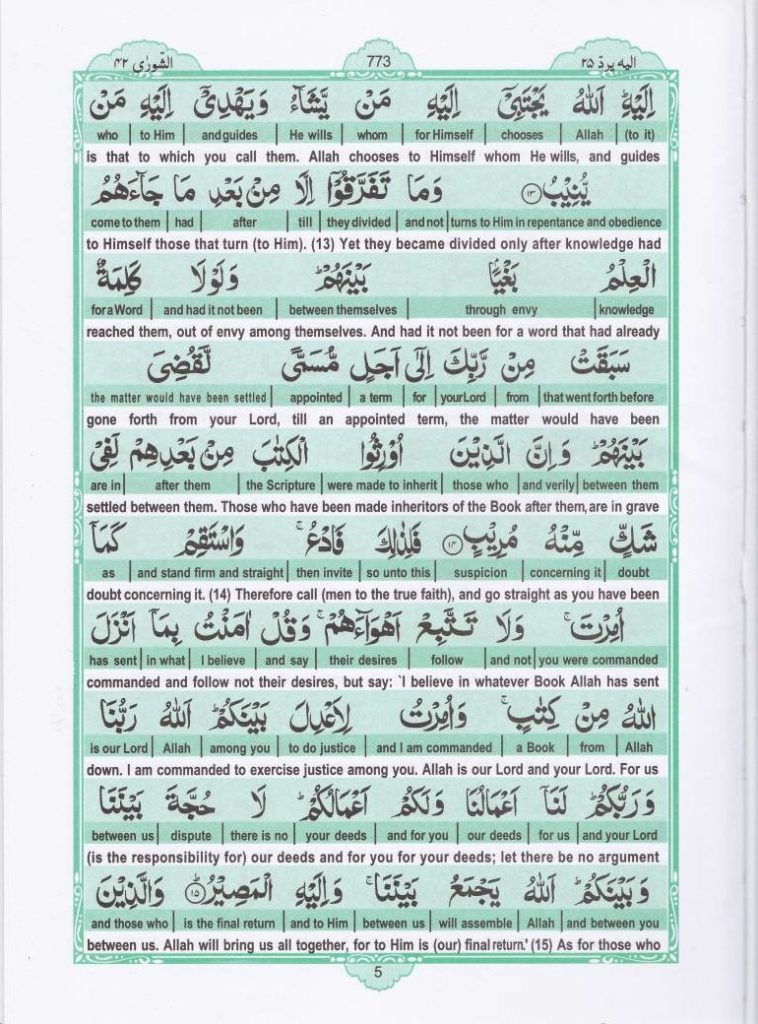 اليه يرد ۲۵ 773 الشّورٰى ۴۲
اِلَيْهِ ؕ اَللّٰهُ يَجْتَبِىْۤ اِلَيْهِ مَنْ يَّشَآءُ وَيَهْدِىْۤ اِلَيْهِ مَنْ
(to it) | Allah | chooses | for Himself | whom | He wills | and guides | to Him | who
is that to which you call them. Allah chooses to Himself whom He wills, and guides
يُّنِيْبُ ۟﴿۱۳﴾ وَمَا تَفَرَّقُوْۤا اِلَّا مِنْۢ بَعْدِ مَا جَآءَهُمُ
turns to Him in repentance and obedience | and not | they divided | till | after | had | come to them
to Himself those that turn (to Him). (13) Yet they became divided only after knowledge had
الْعِلْمُ بَغْيًۢا بَيْنَهُمْ ؕ وَلَوْلَا كَلِمَةٌ
knowledge | through envy | between themselves | and had it not been | for a Word
reached them, out of envy among themselves. And had it not been for a word that had already
سَبَقَتْ مِنْ رَّبِّكَ اِلٰٓى اَجَلٍ مُّسَمًّى لَّقُضِىَ
that went forth before | from | your Lord | for | a term | appointed | the matter would have been settled
gone forth from your Lord, till an appointed term, the matter would have been
بَيْنَهُمْ ؕ وَاِنَّ الَّذِيْنَ اُوْرِثُوا الْكِتٰبَ مِنْۢ بَعْدِهِمْ لَفِىْ
between them | and verily | those who | were made to inherit | the Scripture | after them | are in
settled between them. Those who have been made inheritors of the Book after them, are in grave
شَكٍّ مِّنْهُ مُرِيْبٍ ﴿۱۴﴾ فَلِذٰلِكَ فَادْعُ ۚ وَاسْتَقِمْ كَمَاۤ
doubt | concerning it | suspicion | so unto this | then invite | and stand firm and straight | as
doubt concerning it. (14) Therefore call (men to the true faith), and go straight as you have been
اُمِرْتَ ۚ وَلَا تَتَّبِعْ اَهْوَآءَهُمْ ۚ وَقُلْ اٰمَنْتُ بِمَاۤ اَنْزَلَ
you were commanded | and not | follow | their desires | and say | I believe | in what | has sent
commanded and follow not their desires, but say: `I believe in whatever Book Allah has sent
اللّٰهُ مِنْ كِتٰبٍ ۚ وَاُمِرْتُ لِاَعْدِلَ بَيْنَكُمْ ؕ اَللّٰهُ رَبُّنَا
Allah | from | a Book | and I am commanded | to do justice | among you | Allah | is our Lord
down. I am commanded to exercise justice among you. Allah is our Lord and your Lord. For us
وَرَبُّكُمْ ؕ لَنَاۤ اَعْمَالُنَا وَلَكُمْ اَعْمَالُكُمْ ؕ لَا حُجَّةَ بَيْنَنَا
and your Lord | for us | our deeds | and for you | your deeds | there is no | dispute | between us
(is the responsibility for) our deeds and for you for your deeds; let there be no argument
وَبَيْنَكُمْ ؕ اَللّٰهُ يَجْمَعُ بَيْنَنَا ۚ وَاِلَيْهِ الْمَصِيْرُ ؕ﴿۱۵﴾ وَالَّذِيْنَ
and between you | Allah | will assemble | between us | and to Him | is the final return | and those who
between us. Allah will bring us all together, for to Him is (our) final return.' (15) As for those who
5